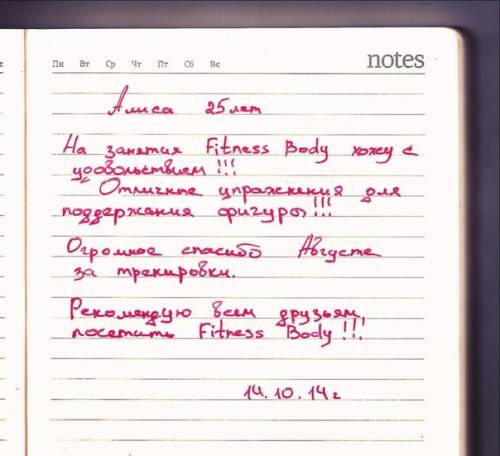 Пн Вт Ср Чт Пт Сб Вс
notes
Алиса 25 лет
На занятия Fitness Body хожу с
удовольствием!!!
Отличные упражнения для
поддержания фигуры!!!
Огромное спасибо Августе
за тренировки.
Рекомендую всем друзьям,
посетить Fitness Body!!!
14.10.14 г